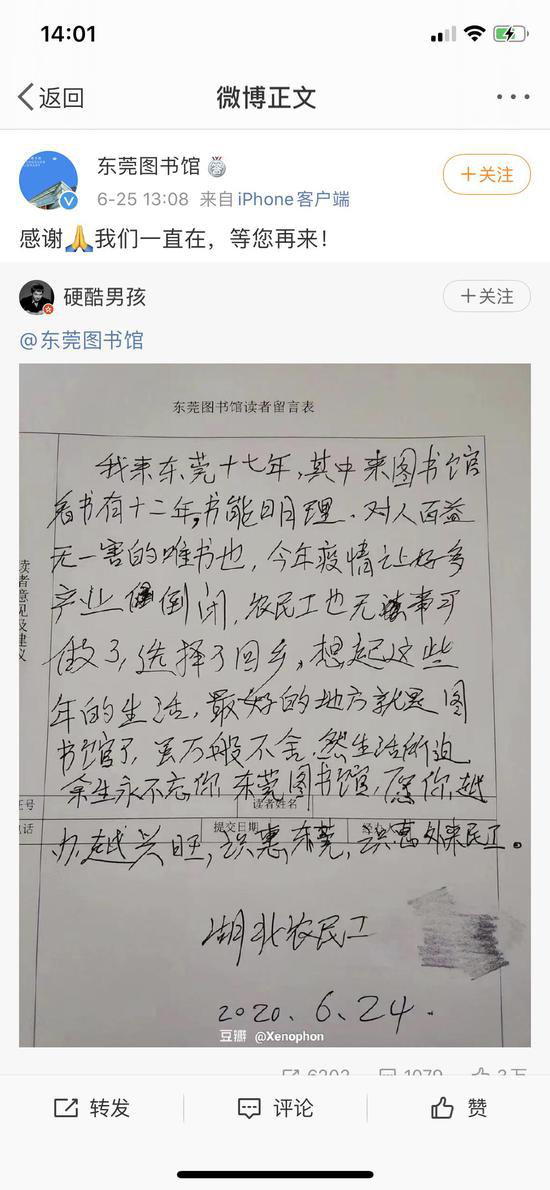 14:01
返回
微博正文
东莞图书馆
6-25 13:08 来自 iPhone客户端
+关注
感谢🙏我们一直在，等您再来！
硬酷男孩
+关注
@东莞图书馆
东莞图书馆读者留言表
读者意见及建议
我来东莞十七年,其中来图书馆
看书有十二年,书能明理.对人百益
无一害的唯书也,今年疫情让好多
产业倒闭,农民工也无事可
做了,选择了回乡,想起这些
年的生活,最好的地方就是图
书馆了,虽万般不舍,然生活所迫
余生永不忘你,东莞图书馆,愿你越
办越兴旺,识惠东莞,识惠外来民工。
证号
读者姓名
电话
提交日期
湖北农民工
2020.6.24.
豆瓣 @Xenophon
转发
评论
赞